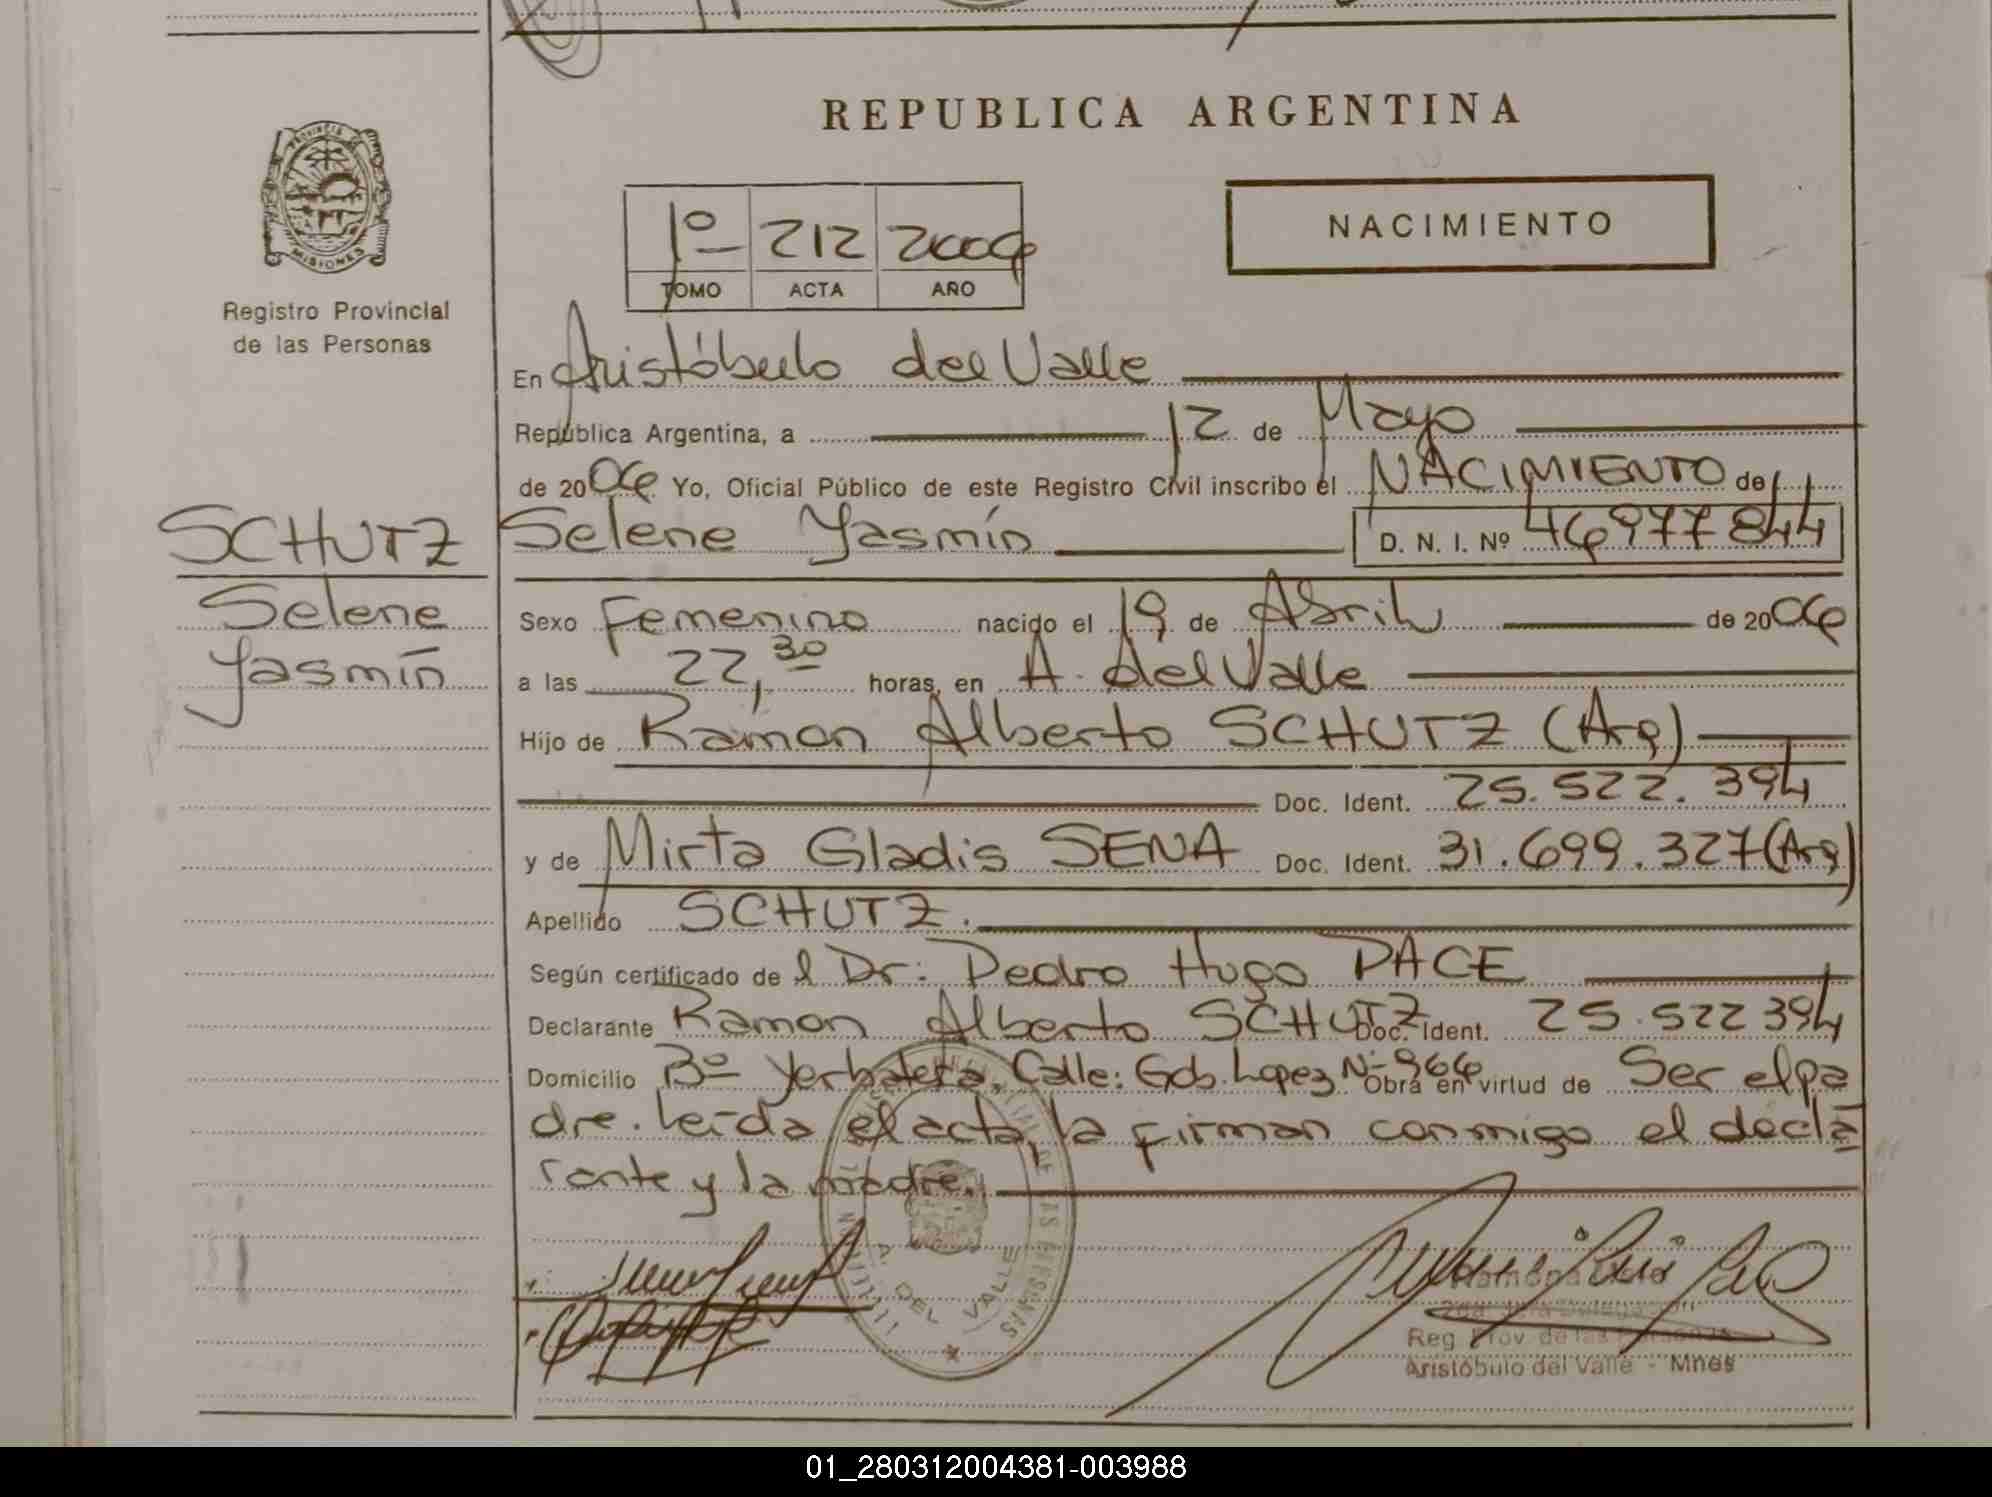 REPUBLICA ARGENTINA
NACIMIENTO
1º 212 2006
TOMO ACTA AÑO
PROVINCIA DE MISIONES
Registro Provincial
de las Personas
SCHUTZ
Selene
Yasmín
En Aristóbulo del Valle
República Argentina, a 12 de Mayo
de 2006 Yo, Oficial Público de este Registro Civil inscribo el NACIMIENTO de
Selene Yasmín D. N. I. Nº 46977844
Sexo Femenino nacido el 19 de Abril de 2006
a las 22,30 horas, en A. del Valle
Hijo de Ramon Alberto SCHUTZ (Arg)
Doc. Ident. 25.522.394
y de Mirta Gladis SENA Doc. Ident. 31.699.327 (Arg)
Apellido SCHUTZ.
Según certificado de l Dr: Pedro Hugo PACE
Declarante Ramon Alberto SCHUTZ Doc. Ident. 25.522394
Domicilio Bº Yerbatera. Calle: Gob. Lopez Nº 966 Obra en virtud de Ser el pa
dre. Leída el acta, la firman conmigo el decla
rante y la madre.
A. DEL VALLE
Reg. Prov. de las Personas
Aristóbulo del Valle - Mnes
01_280312004381-003988